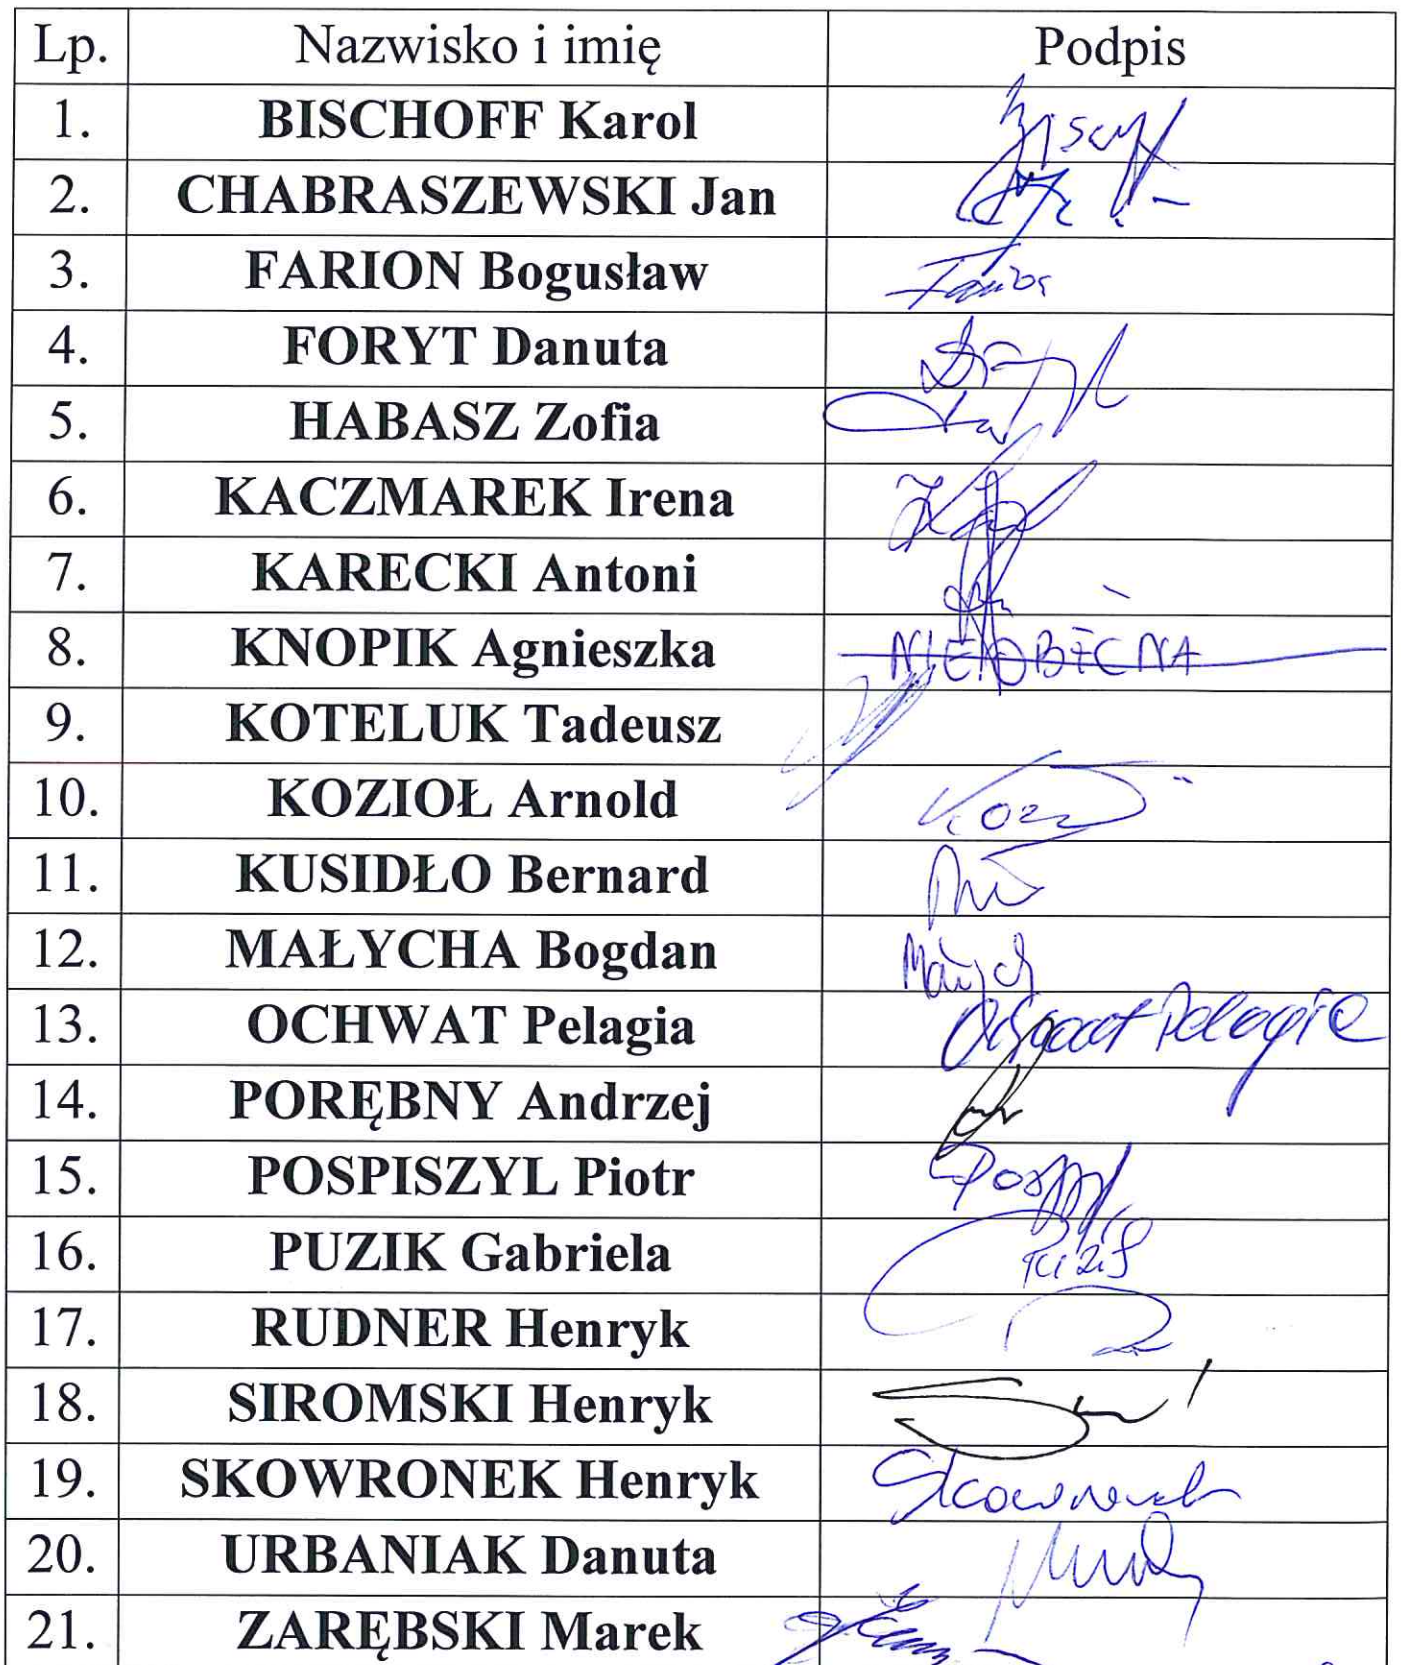 Lp. Nazwisko i imię Podpis
1. BISCHOFF Karol
2. CHABRASZEWSKI Jan
3. FARION Bogusław
4. FORYT Danuta
5. HABASZ Zofia
6. KACZMAREK Irena
7. KARECKI Antoni
8. KNOPIK Agnieszka NIEOBECNA
9. KOTELUK Tadeusz
10. KOZIOŁ Arnold
11. KUSIDŁO Bernard
12. MAŁYCHA Bogdan
13. OCHWAT Pelagia Ochwat Pelagia
14. PORĘBNY Andrzej
15. POSPISZYL Piotr
16. PUZIK Gabriela
17. RUDNER Henryk
18. SIROMSKI Henryk
19. SKOWRONEK Henryk Skowronek
20. URBANIAK Danuta
21. ZARĘBSKI Marek